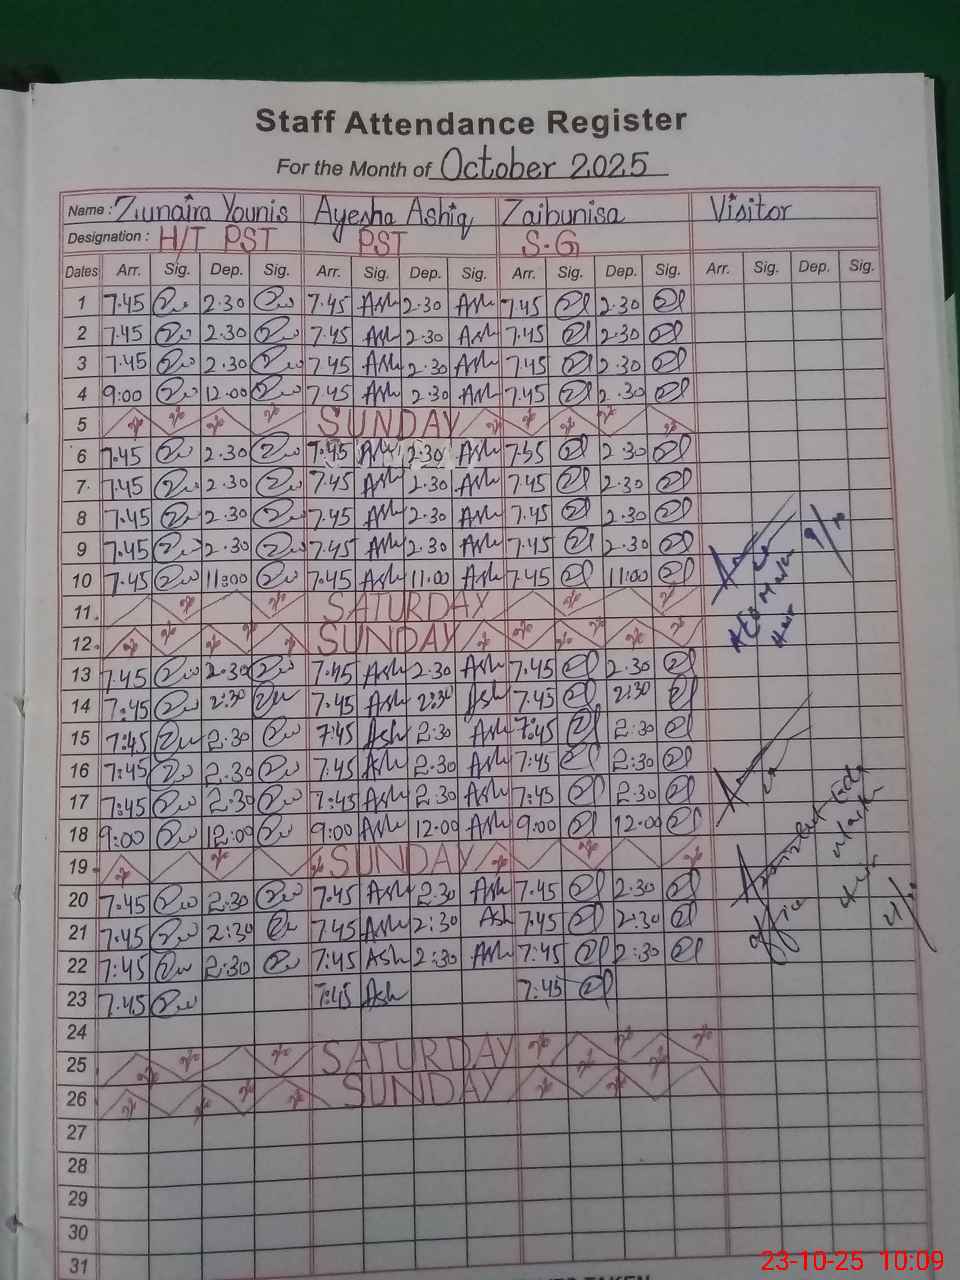 Staff Attendance Register
For the Month of October 2025
Name : Zunaira Younis Ayesha Ashiq Zaibunisa Visitor
Designation : H/T PST PST S-G
Dates Arr. Sig. Dep. Sig. Arr. Sig. Dep. Sig. Arr. Sig. Dep. Sig. Arr. Sig. Dep. Sig.
1 7.45 2.30 7.45 Ash 2.30 Ash 7.45 2.30
2 7.45 2.30 7.45 Ash 2.30 Ash 7.45 2.30
3 7.45 2.30 7.45 Ash 2.30 Ash 7.45 2.30
4 9:00 12.00 7.45 Ash 2.30 Ash 7.45 2.30
5 SUNDAY
6 7.45 2.30 7.45 Ash 2.30 Ash 2.30
7 7.45 2.30 7.45 Ash 2.30 Ash 7.45 2.30
8 7.45 2.30 7.45 Ash 2.30 Ash 7.45 2.30
9 7.45 2.30 7.45 Ash 2.30 Ash 7.45 2.30 9/10
10 7.45 11:00 7.45 Ash 11.00 Ash 7.45 11:00
11 SATURDAY
12 SUNDAY
13 7.45 2.30 7.45 Ash 2.30 Ash 7.45 2.30
14 7:45 2:30 7.45 Ash 2:30 Ash 7.45 2:30
15 7:45 2.30 7:45 Ash 2:30 Ash 7:45 2:30
16 7:45 2.30 7.45 Ash 2.30 Ash 7:45 2:30
17 7:45 2:30 7:45 Ash 2:30 Ash 7:45 2:30
18 9:00 12:00 9:00 Ash 12.00 Ash 9:00 12.00
19 SUNDAY
20 7.45 2.30 7.45 Ash 2.30 Ash 7.45 2.30
21 7.45 2:30 7.45 Ash 2:30 Ash 7.45 2:30
22 7:45 2:30 7:45 Ash 2:30 Ash 7:45 2:30
23 7.45 7:45 Ash 7:45
24
25 SATURDAY
26 SUNDAY
27
28
29
30
31
23-10-25 10:09